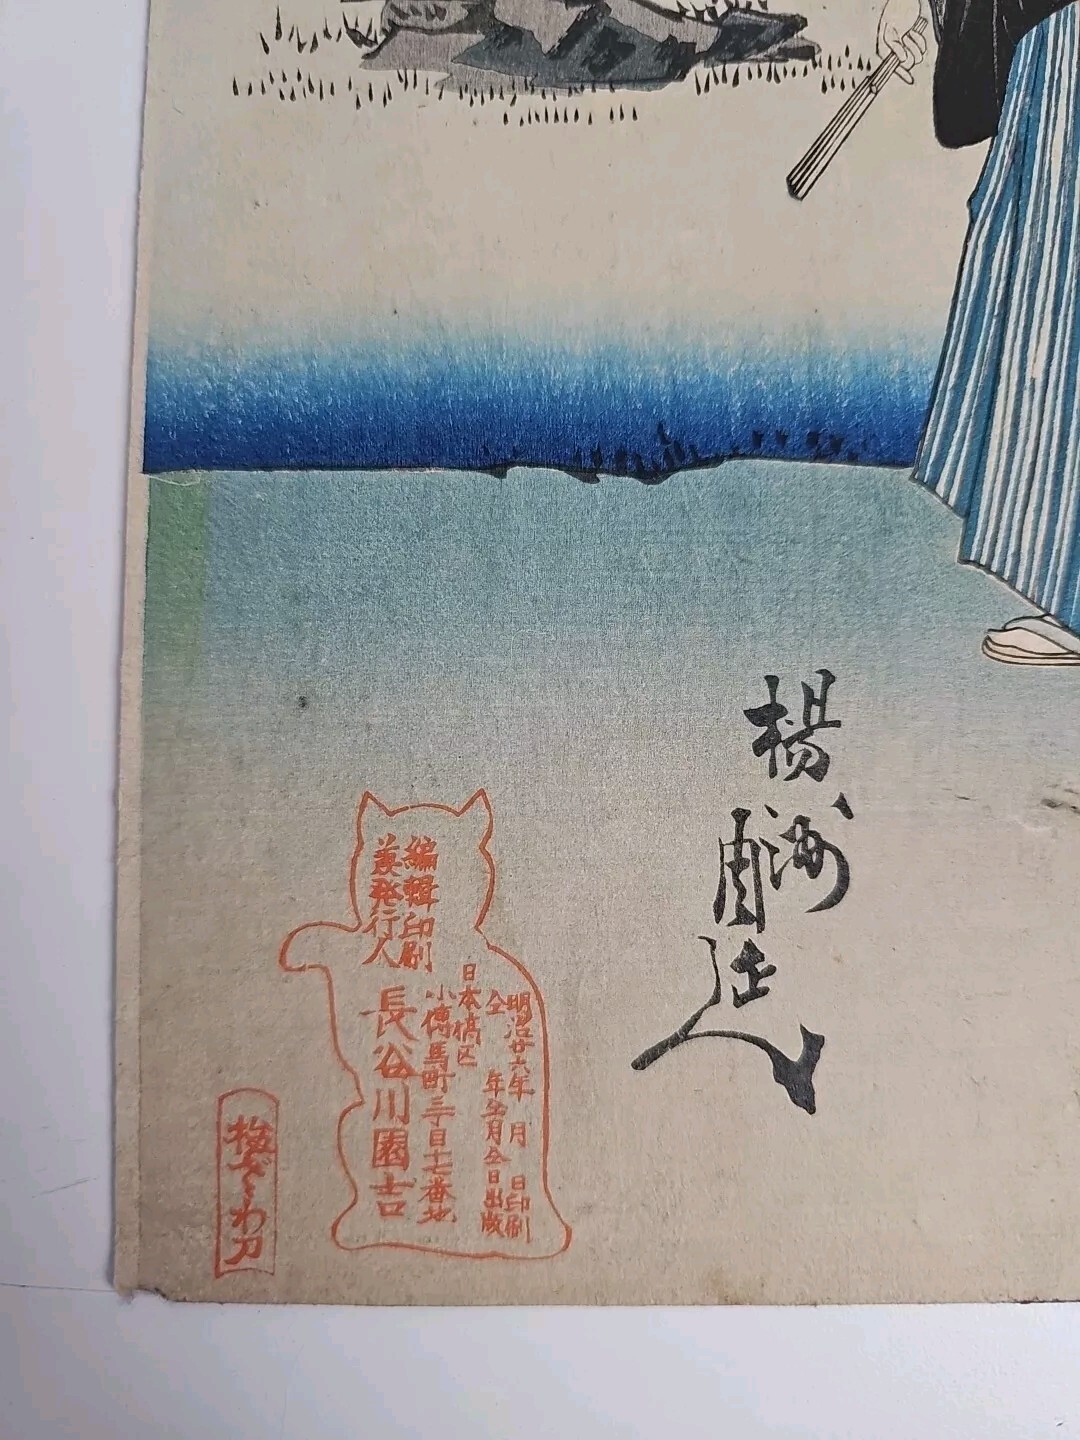 楊洲周延
明治廿六年 月 日印刷
仝 年仝月仝日出版
日本橋区
小傳馬町三丁目十七番地
編輯印刷
兼発行人
長谷川園吉